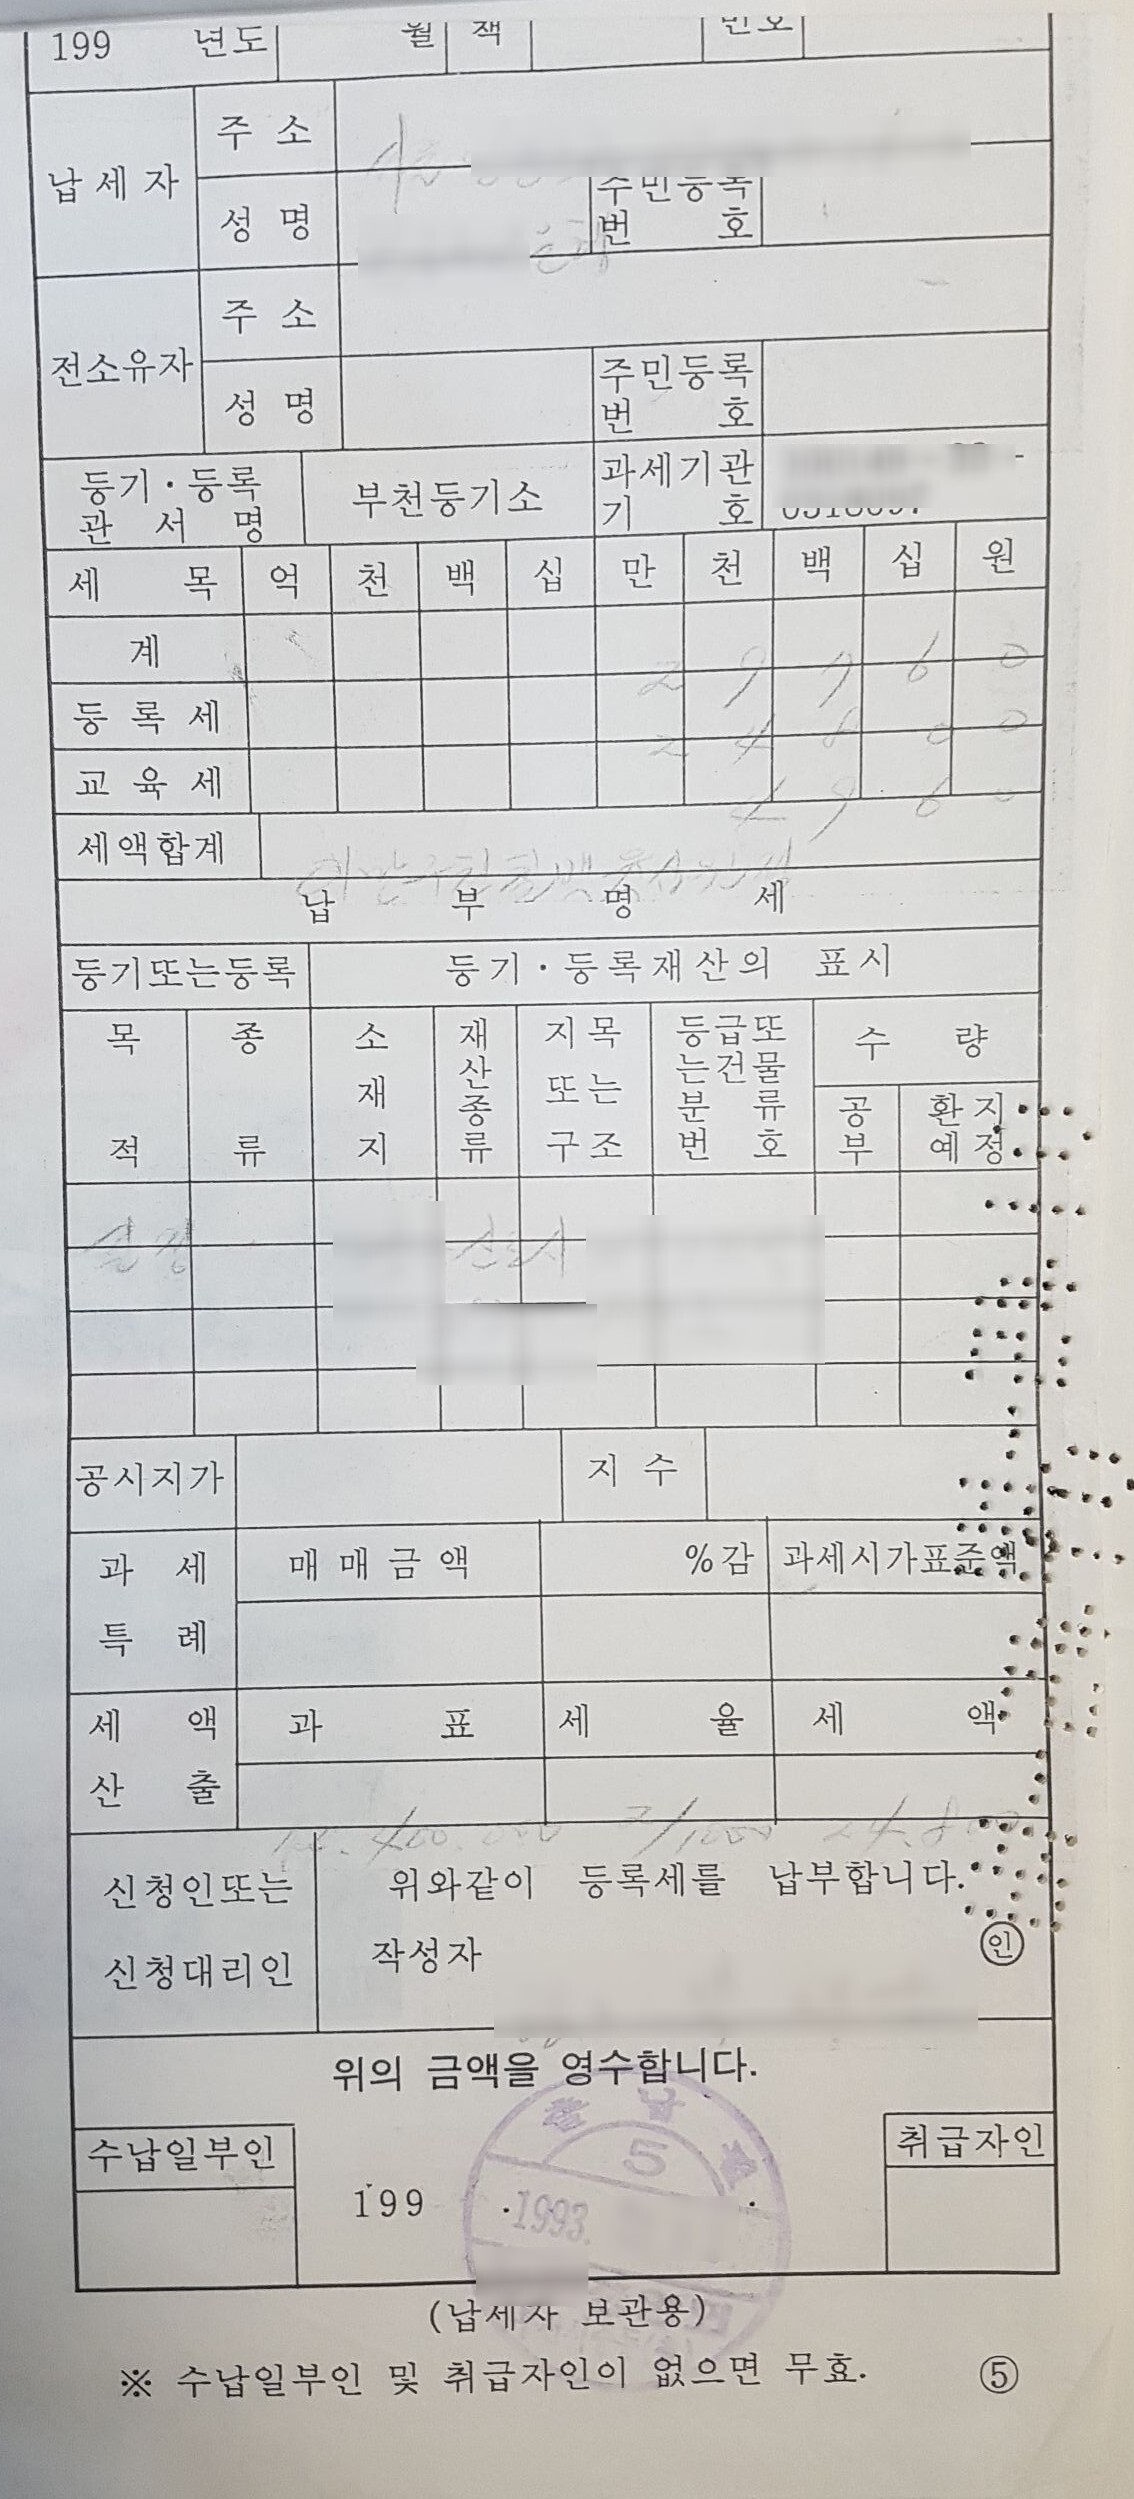 199 년도 월 책 번호
납세자 주소
성명 은행 주민등록번호
전소유자 주소
성명 주민등록번호
등기·등록관서명 부천등기소 과세기관기호
세목 억 천 백 십 만 천 백 십 원
계 2 9 7 6 0
등록세 2 4 8 0 0
교육세 4 9 6 0
세액합계 이만구천칠백육십원정
납부명세
등기또는등록 등기·등록재산의 표시
목적 종류 소재지 재산종류 지목또는구조 등급또는건물분류번호 수량
공부 환지예정
설정
공시지가 지수
과세특례 매매금액 %감 과세시가표준액
세액산출 과표 세율 세액
12.400.000 2/1000 24.800
신청인또는 위와같이 등록세를 납부합니다.
신청대리인 작성자 인
위의 금액을 영수합니다.
수납일부인 취급자인
5
199 . .
1993.
(납세자 보관용)
※ 수납일부인 및 취급자인이 없으면 무효. ⑤